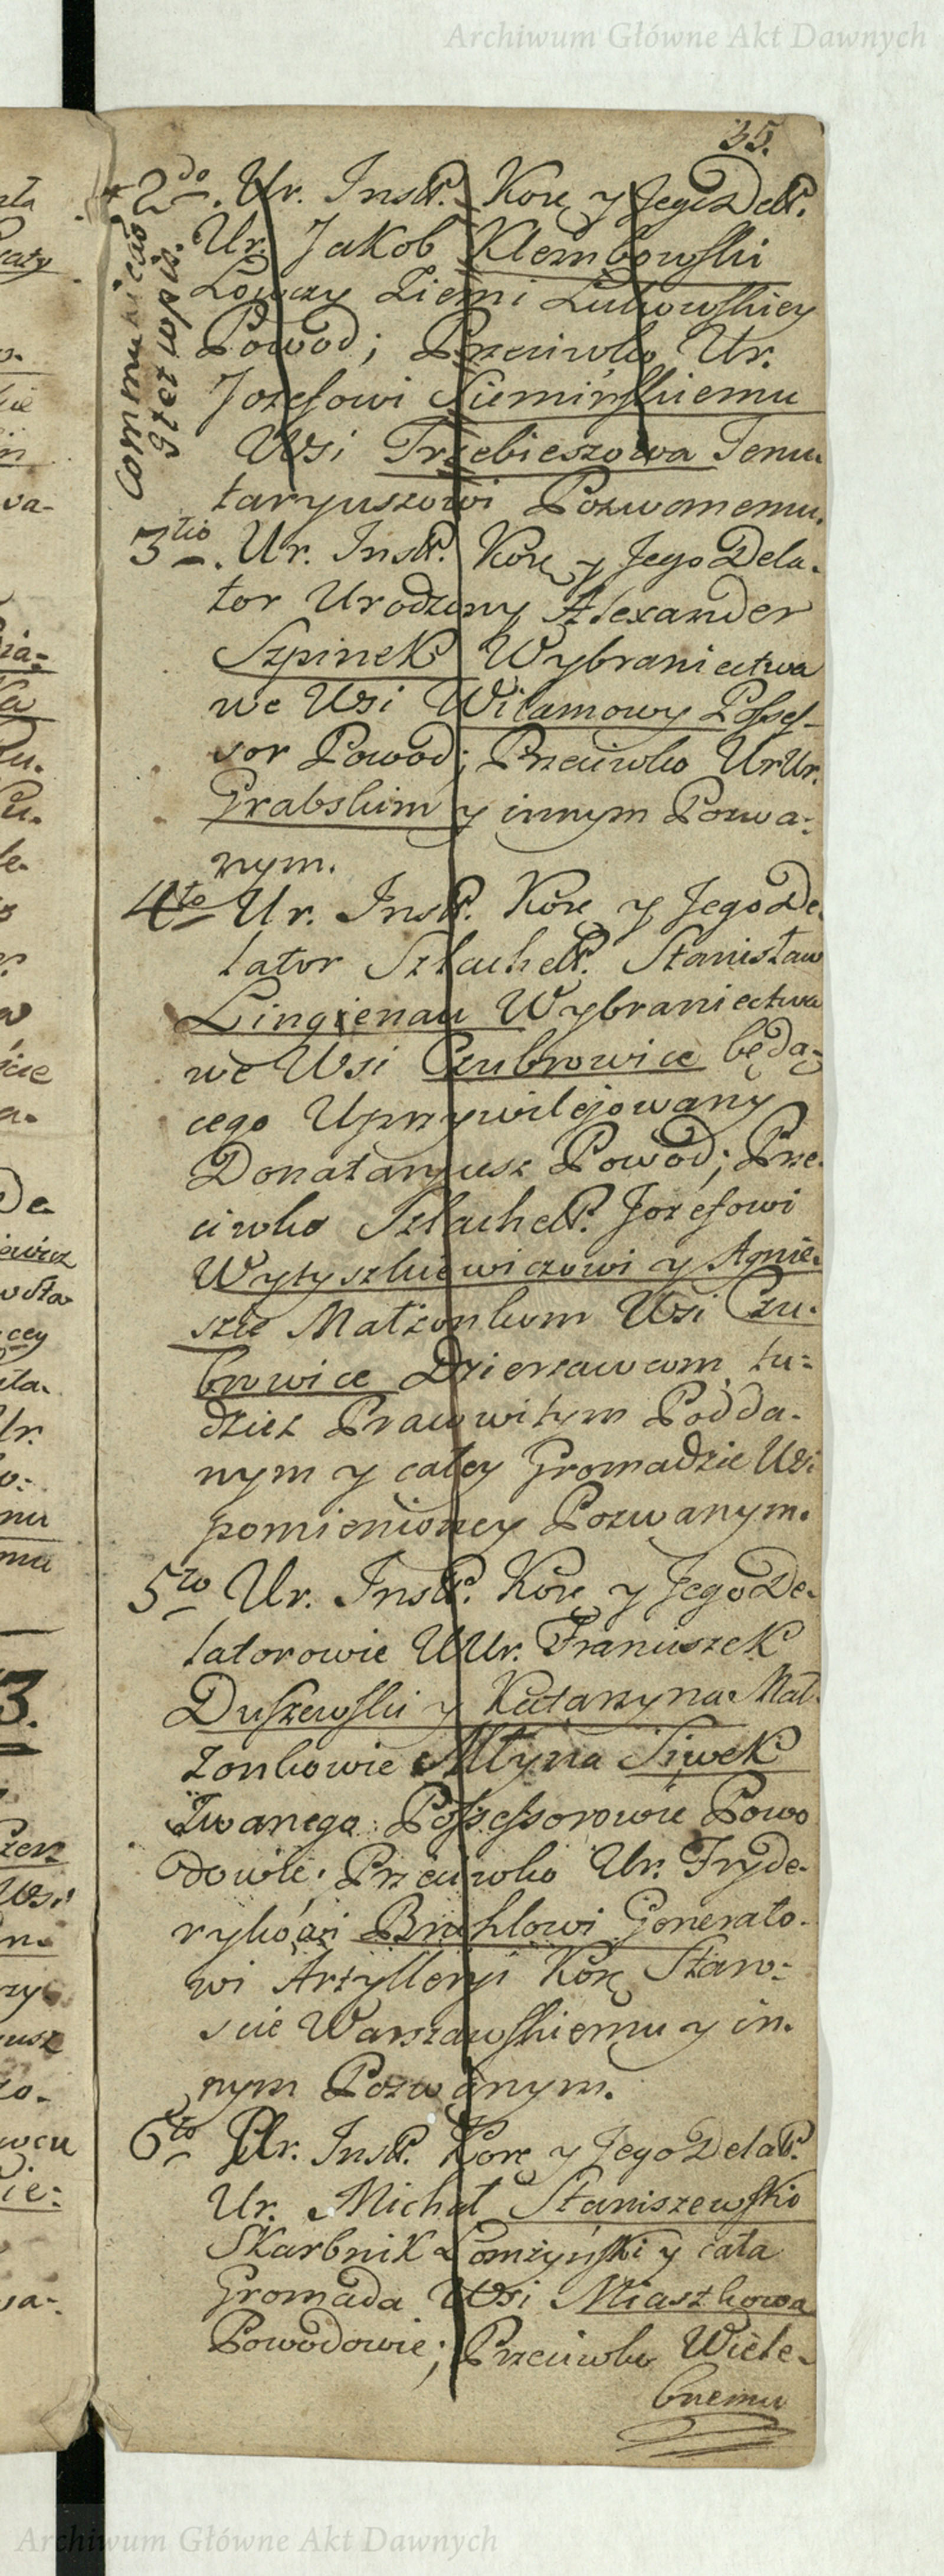 Archiwum Główne Akt Dawnych
35.
2do. Ur. Inst. Korę y Jego Delt.
Ur. Jakob Klembowski
Łowczy Ziemi Łukowskiey
Powod; Przeciwko Ur.
Jozefowi Siemińskiemu
Wsi Trzebieszowa Tenu
taryuszowi Pozwanemu.
3tio. Ur. Inst. Korę y Jego Dela-
tor Urodzony Alexander
Szpinek Wybraniectwa
we Wsi Wilamowy Posses-
sor Powod; Przeciwko UrUr.
Grabskim y innym Pozwa-
nym.
4to Ur. Inst. Korę y Jego De-
lator Szlachet. Stanisław
Lingienau Wybraniectwa
we Wsi Czubrowice będą-
cego Uprzywilejowany
Donataryusz Powod; Prze-
ciwko Szlachet. Jozefowi
Wytyszkiewiczowi y Agnie-
szce Małżonkom Wsi Czu-
browice Dzierzawcom tu-
dzież Prawowitym Podda-
nym y całey Gromadzie Wsi
pomienioney Pozwanym.
5to Ur. Inst. Korę y Jego De-
latorowie UUr. Franciszek
Duszewski y Katarzyna Mał-
żonkowie Młyna Siwek
Zwanego Possessorowie Powo
dowie; Przeciwko Ur. Fryde-
rykowi Bruhlowi Generało-
wi Artylleryi Korę Staro-
scie Warszawskiemu y in-
nym Pozwanym.
6to Ur. Inst. Korę y Jego Delat.
Ur. Michał Staniszewski
Skarbnik Łomżyński y cała
Gromada Wsi Miaszkowa
Powodowie; Przeciwko Wiele-
bnemu
Archiwum Główne Akt Dawnych